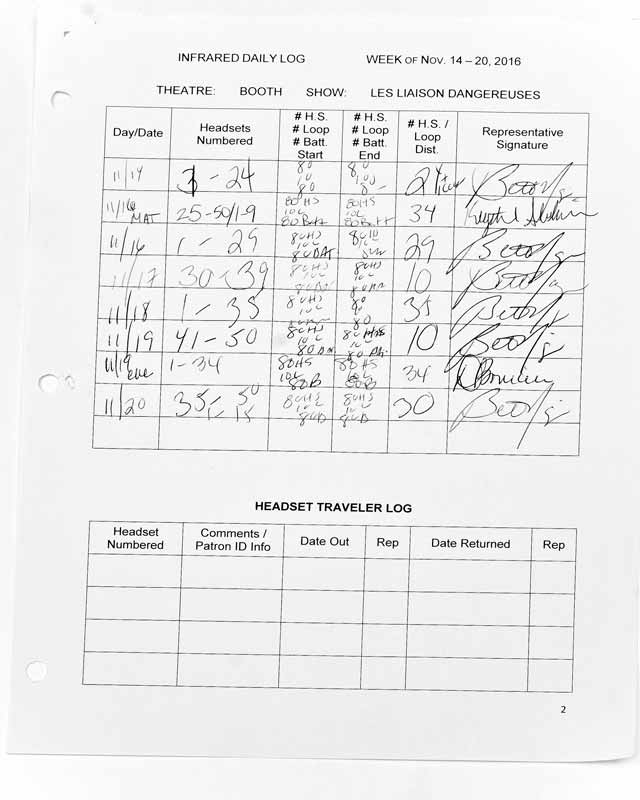 INFRARED DAILY LOG WEEK OF NOV. 14 – 20, 2016
THEATRE: BOOTH SHOW: LES LIAISON DANGEREUSES
Day/Date Headsets Numbered # H.S. # Loop # Batt. Start # H.S. # Loop # Batt. End # H.S. / Loop Dist. Representative Signature
11/14 1 - 24 80 10 80 80 10 80 24
11/16 MAT 25-50/1-9 80HS 10L 80Batt 80HS 10L 80Batt 34
11/16 1 - 29 80HS 10L 80BAT 29
11/17 30-39 80HS 10L 80HS 10L 10
11/18 1 - 35 80HS 10L 80 35
11/19 41 - 50 80HS 10L 80HS 10L 10
11/19 eve 1-34 80HS 10L 80B 80HS 10L 80B 34
11/20 35- 50 1- 15 80HS 10L 80B 80HS 10L 80B 30
HEADSET TRAVELER LOG
Headset Numbered Comments / Patron ID Info Date Out Rep Date Returned Rep
2